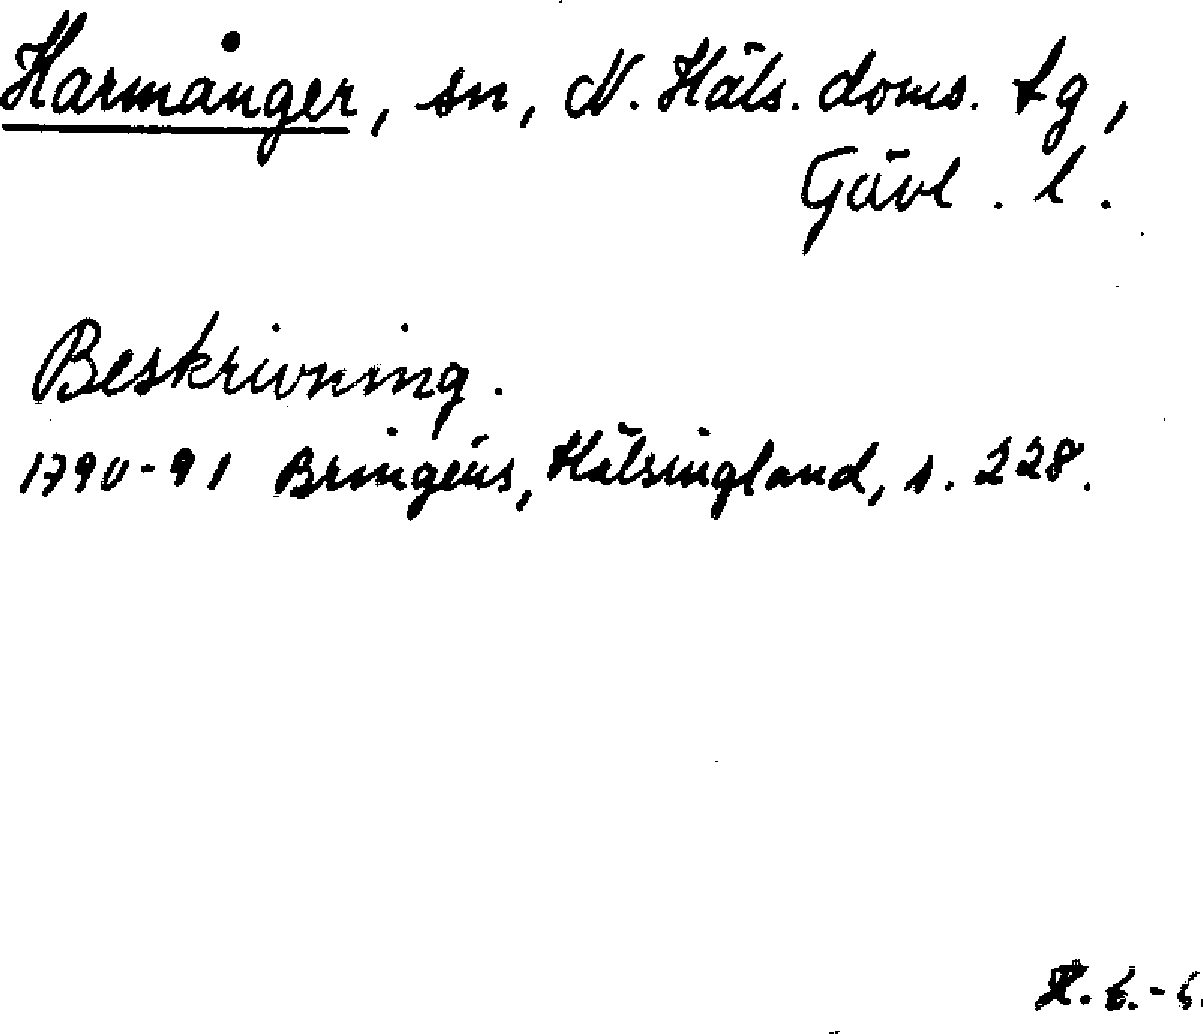 Harmånger, sn, N. Häls. doms. tg,
Gävl. l.
Beskrivning.
1790-91 Bringéus, Hälsingland, s. 228.